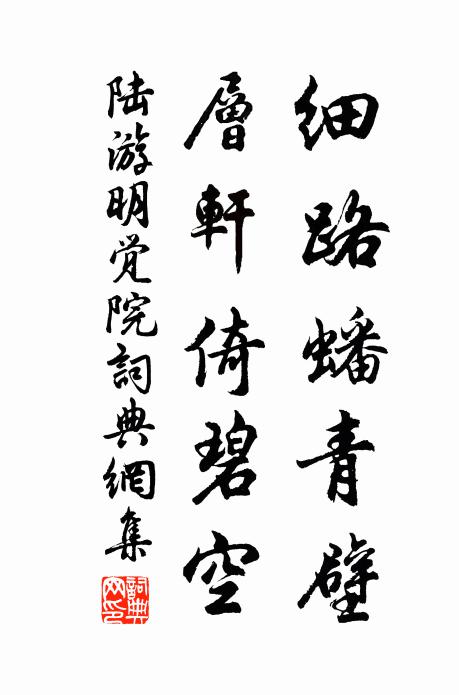 细路蟠青壁
層軒倚碧空
陆游明觉院詞典網集
詞典網印